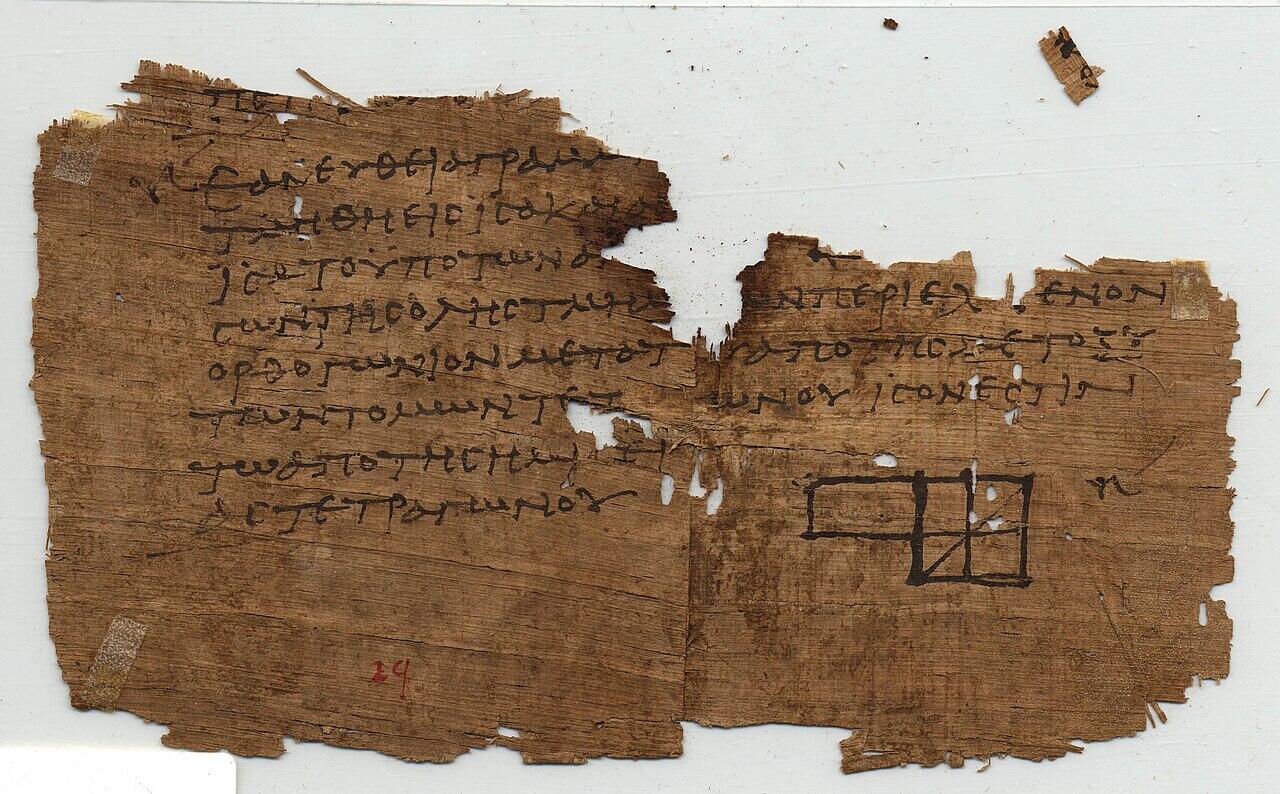 ΕΑΝ ΕΥΘΕΙΑ ΓΡΑΜΜ
ΤΜΗΘΗ ΕΙϹ ΙϹΑ ΚΑΙ Α
ΙϹΑ ΤΟ ΫΠΟ ΤΩΝ ΑΝ
ϹΩΝ ΤΗϹ ΟΛΗϹ ΤΜΗΜ ΩΝ ΠΕΡΙΕΧ ΕΝΟΝ
ΟΡΘΟΓΩΝΙΟΝ ΜΕΤΑ Τ Υ ΑΠΟ ΤΗϹ ΜΕΤΟΞΥ
ΤΩΝ ΤΟΜΩΝ ΤΕΤ ΩΝΟΥ ΙϹΟΝ ΕϹΤΙΝ
ΤΩ ΑΠΟ ΤΗϹ ΗΜΙϹΙ
ΑϹ ΤΕΤΡΑΓΩΝΟΥ
29